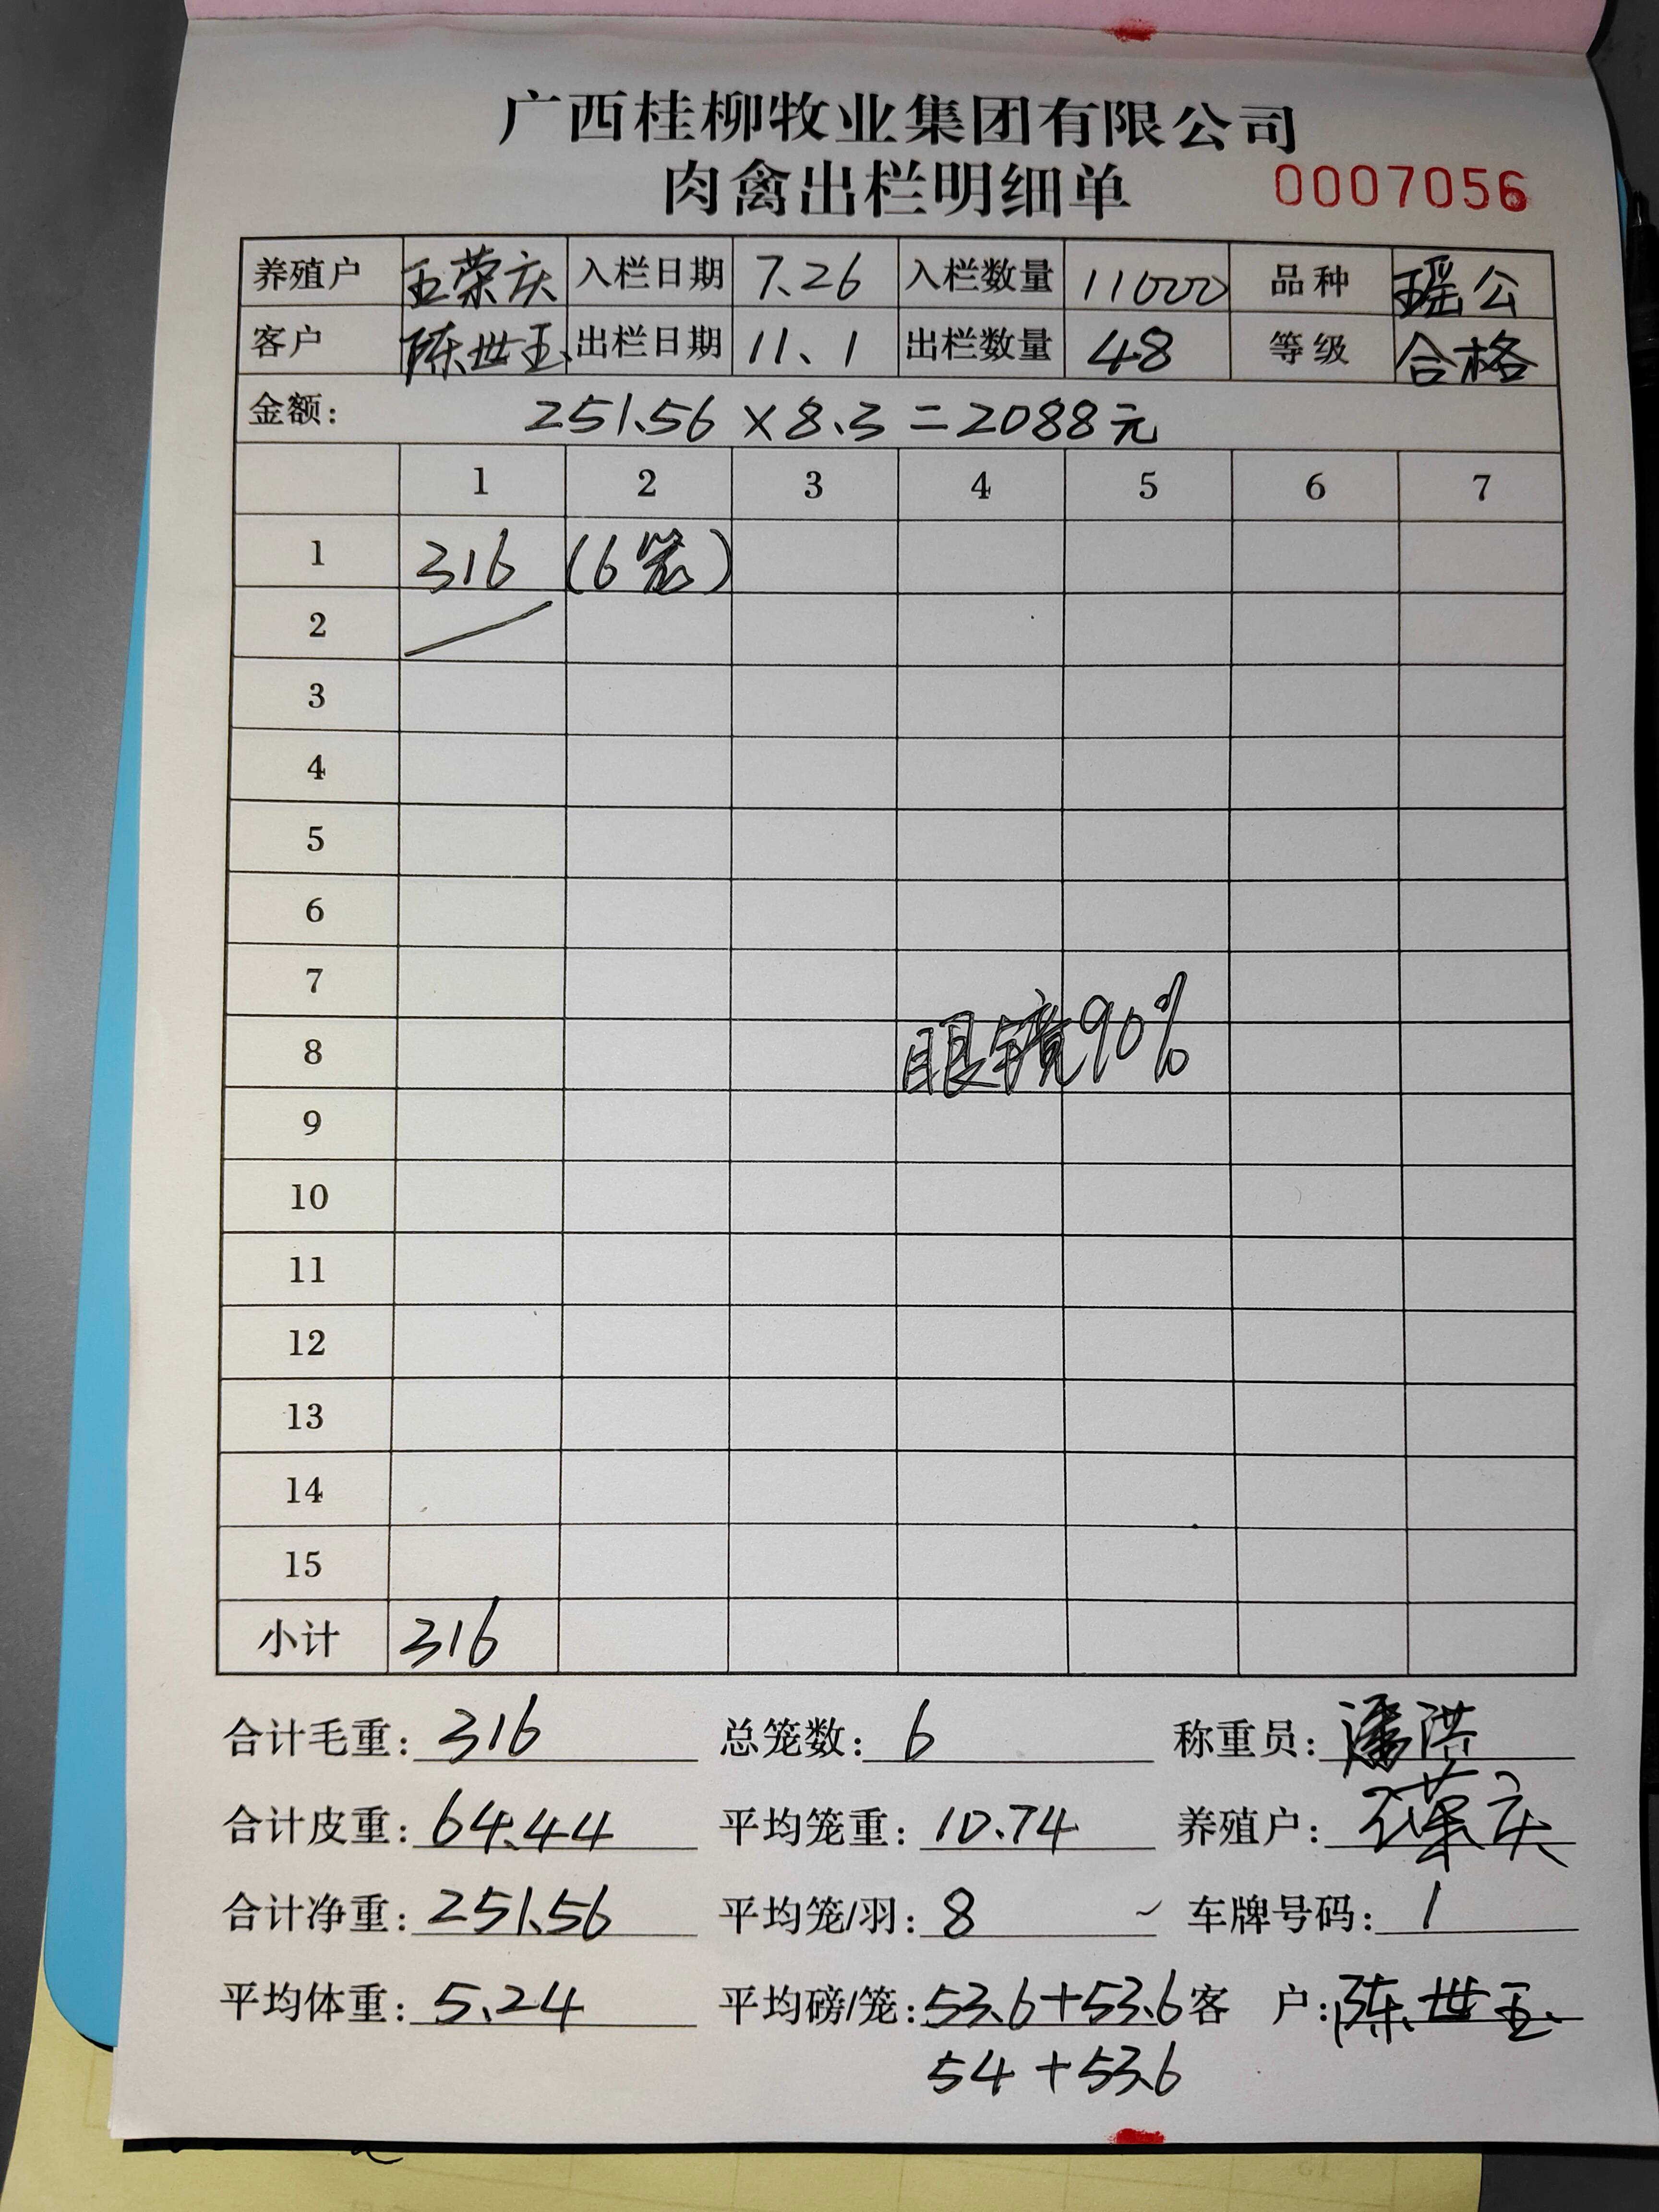 广西桂柳牧业集团有限公司
肉禽出栏明细单 0007056
养殖户 王荣庆 入栏日期 7.26 入栏数量 11000 品种 瑶公
客户 陈世玉 出栏日期 11.1 出栏数量 48 等级 合格
金额: 251.56×8.3=2088元
1 2 3 4 5 6 7
1 316 (6笼)
2
3
4
5
6
7
8 眼镜90%
9
10
11
12
13
14
15
小计 316
合计毛重: 316 总笼数: 6 称重员: 潘洪
合计皮重: 64.44 平均笼重: 10.74 养殖户: 王荣庆
合计净重: 251.56 平均笼/羽: 8 车牌号码: 1
平均体重: 5.24 平均磅/笼: 53.6+53.6 客 户: 陈世玉
54+53.6